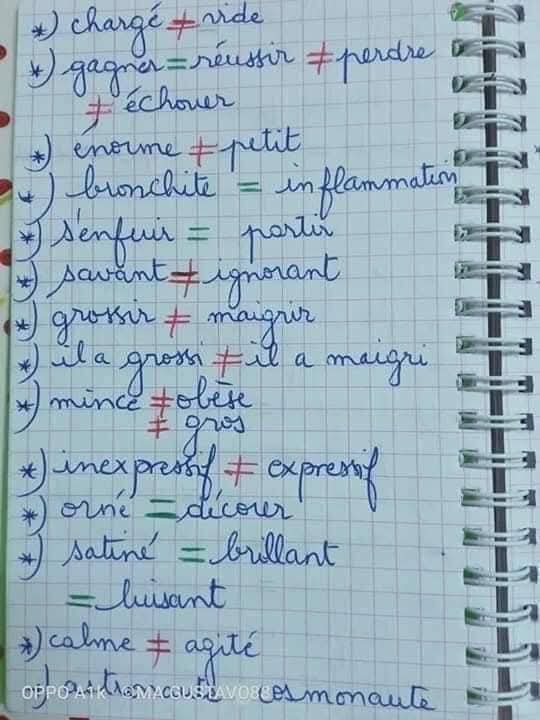 *) chargé ≠ vide
*) gagner = réussir ≠ perdre
≠ échouer
*) énorme ≠ petit
*) bronchite = inflammation
*) s'enfuir = partir
*) savant ≠ ignorant
*) grossir ≠ maigrir
*) il a grossi ≠ il a maigri
*) mince ≠ obèse
≠ gros
*) inexpressif ≠ expressif
*) orné = décorer
*) satiné = brillant
= luisant
*) calme ≠ agité
cosmonaute
OPPO A1k ©MA.GUSTAVO88